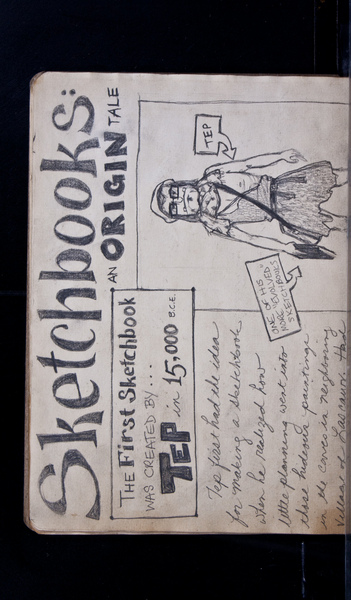 Sketchbooks:
AN ORIGIN TALE
THE First Sketchbook
WAS CREATED BY...
TEP in 15,000 B.C.E.
TEP
ONE OF HIS
MORE "EVOLVED"
SKETCHBOOKS
Tep first had the idea
for making a sketchbook
when he realized how
little planning went into
those hideous paintings
in the caves in neighboring
village of Lascaux. Had